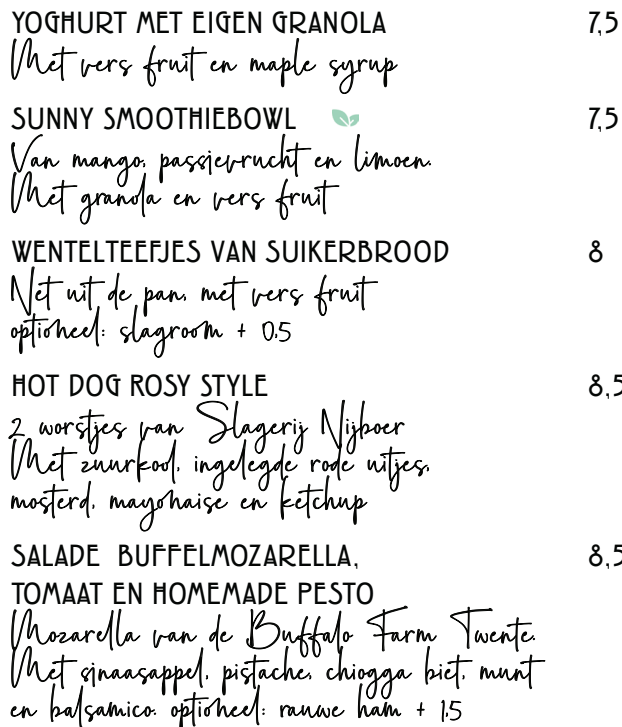 YOGHURT MET EIGEN GRANOLA 7,5
Met vers fruit en maple syrup
SUNNY SMOOTHIEBOWL 7,5
Van mango, passievrucht en limoen.
Met granola en vers fruit
WENTELTEEFJES VAN SUIKERBROOD 8
Net uit de pan, met vers fruit
optioneel: slagroom + 0,5
HOT DOG ROSY STYLE 8,5
2 worstjes van Slagerij Nijboer
Met zuurkool, ingelegde rode uitjes,
mosterd, mayonaise en ketchup
SALADE BUFFELMOZARELLA, 8,5
TOMAAT EN HOMEMADE PESTO
Mozarella van de Buffalo Farm Twente.
Met sinaasappel, pistache, chiogga biet, munt
en balsamico. optioneel: rauwe ham + 1,5